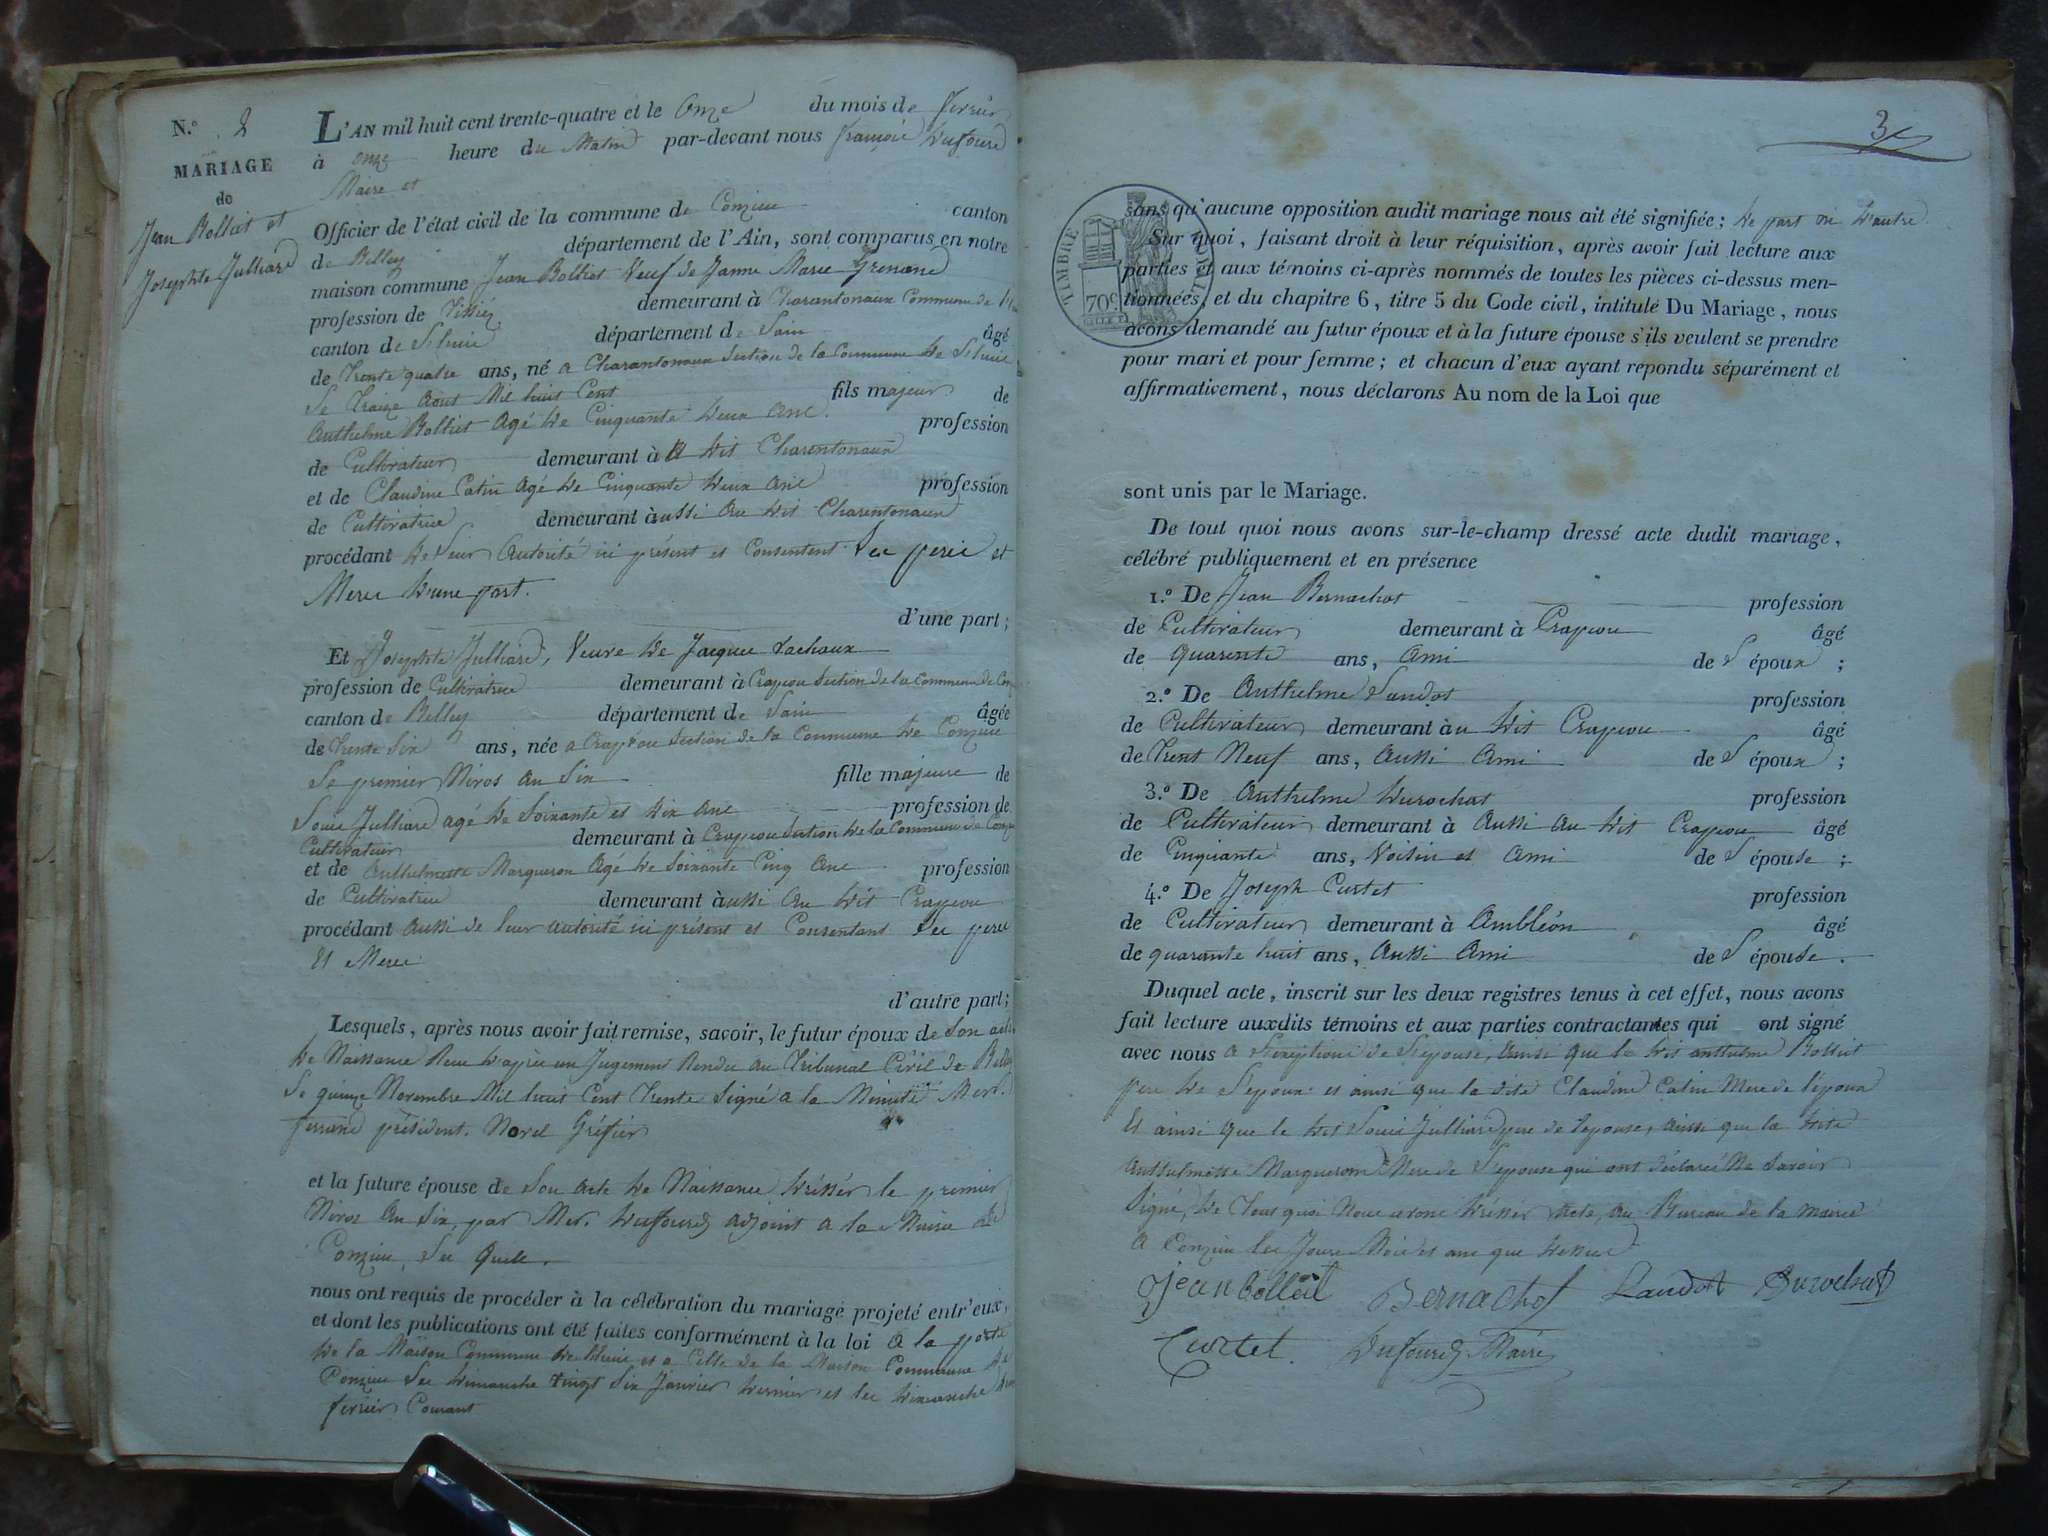 N.º 2
MARIAGE
de
Jean Bolliet et
Josephte Julliard
L'AN mil huit cent trente-quatre et le Onze du mois de fevrier
à onze heure du Matin par-devant nous françois Dufourd
Maire et
Officier de l'état civil de la commune de Conzieu canton
de Belley département de l'Ain, sont comparus en notre
maison commune Jean Bolliet Veuf de Janne Marie
profession de demeurant à Charantonaux Commune de
canton de département de Lain âgé
de trente quatre ans, né a Charantonaux Section de la Commune de
Le traize Aout Mil huit Cent fils majeur de
Anthelme Bolliet Agé de Cinquante deux Ans profession
de Cultivateur demeurant à dit Charentonaux
et de Claudine Catin Agé de Cinquante deux Ans profession
de Cultivatrice demeurant àussi Au dit Charentonaux
procédant de leur Autorité ici présent et Consentent Ses peres et
Meres D'une part.
d'une part;
Et Josephte Julliard, Veuve de Jacques Lachaux
profession de Cultivatrice demeurant à Crapeou Section de la Commune de
canton de Belley département de Lain âgée
de trente Six ans, née a Crapeou Section de la Commune de Conzieu
Le premier Nivos an Six fille majeure de
Louis Julliard agé de Soixante et dix Ans profession de
Cultivateur demeurant à Crapeou Section de la Commune de
et de Anthelmette Marqueron Agé de Soixante Cinq Ans profession
de Cultivatrice demeurant àussi Au dit Crapeou
procédant aussi de leur autorité ici présent et Consentant Ses peres
Et Meres
d'autre part;
Lesquels, après nous avoir fait remise, savoir, le futur époux de Son acte
de Naissance d'après un Jugement Rendu au Tribunal Civil de
Le quinze Novembre Mil huit Cent Trente Signé a la Minute
président. Morel Gréfier
et la future épouse de Son Acte de Naissance dréssér le premier
Nivos An Six, par Mr. Dufourd adjoint a la Mairie de
Conzieu, Les Quels.
nous ont requis de procéder à la célébration du mariage projeté entr'eux,
et dont les publications ont été faites conformément à la loi a la porte
de la Maison Commune de et a Celle de la Maison Commune de
Conzieu Les dimanche vingt Six Janvier dernier et les dimanche
fevrier Courant
3
TIMBRE ROYAL
70c.
sans qu'aucune opposition audit mariage nous ait été signifiée; de part ni d'autre
Sur quoi, faisant droit à leur réquisition, après avoir fait lecture aux
parties et aux témoins ci-après nommés de toutes les pièces ci-dessus men-
tionnées, et du chapitre 6, titre 5 du Code civil, intitulé Du Mariage, nous
avons demandé au futur époux et à la future épouse s'ils veulent se prendre
pour mari et pour femme; et chacun d'eux ayant repondu séparément et
affirmativement, nous déclarons Au nom de la Loi que
sont unis par le Mariage.
De tout quoi nous avons sur-le-champ dressé acte dudit mariage,
célébré publiquement et en présence
1.º De Jean Bernachot profession
de Cultivateur demeurant à Crapeou âgé
de quarente ans, Ami de L'époux;
2.º De Anthelme Landot profession
de Cultivateur demeurant àu dit Crapeou âgé
de Trent Neuf ans, Aussi Ami de L'époux;
3.º De Anthelme Durochat profession
de Cultivateur demeurant à Aussi Au dit Crapeou âgé
de Cinquante ans, Voisin et Ami de L'épouse;
4.º De Joseph Curtet profession
de Cultivateur demeurant à Ambléon âgé
de quarante huit ans, Aussi Ami de L'épouse.
Duquel acte, inscrit sur les deux registres tenus à cet effet, nous avons
fait lecture auxdits témoins et aux parties contractantes qui ont signé
avec nous a de L'épouse, ainsi que le dit anthelme Bolliet
pere de L'époux et ainsi que la dite Claudine Catin Mere de l'époux
Et ainsi que le dit Louis Julliard pere de l'épouse, ainsi que la dite
Anthelmette Marqueron Mere de L'épouse qui ont déclaré Ne Savoir
Signé, de Tous quoi Nous avons dréssér Acte, au Bureau de la mairie
a Conzieu les Jours Mois et ans que dessus
Jean bolleit Bernachot Landot Durochat
Curtet. Dufourd Maire